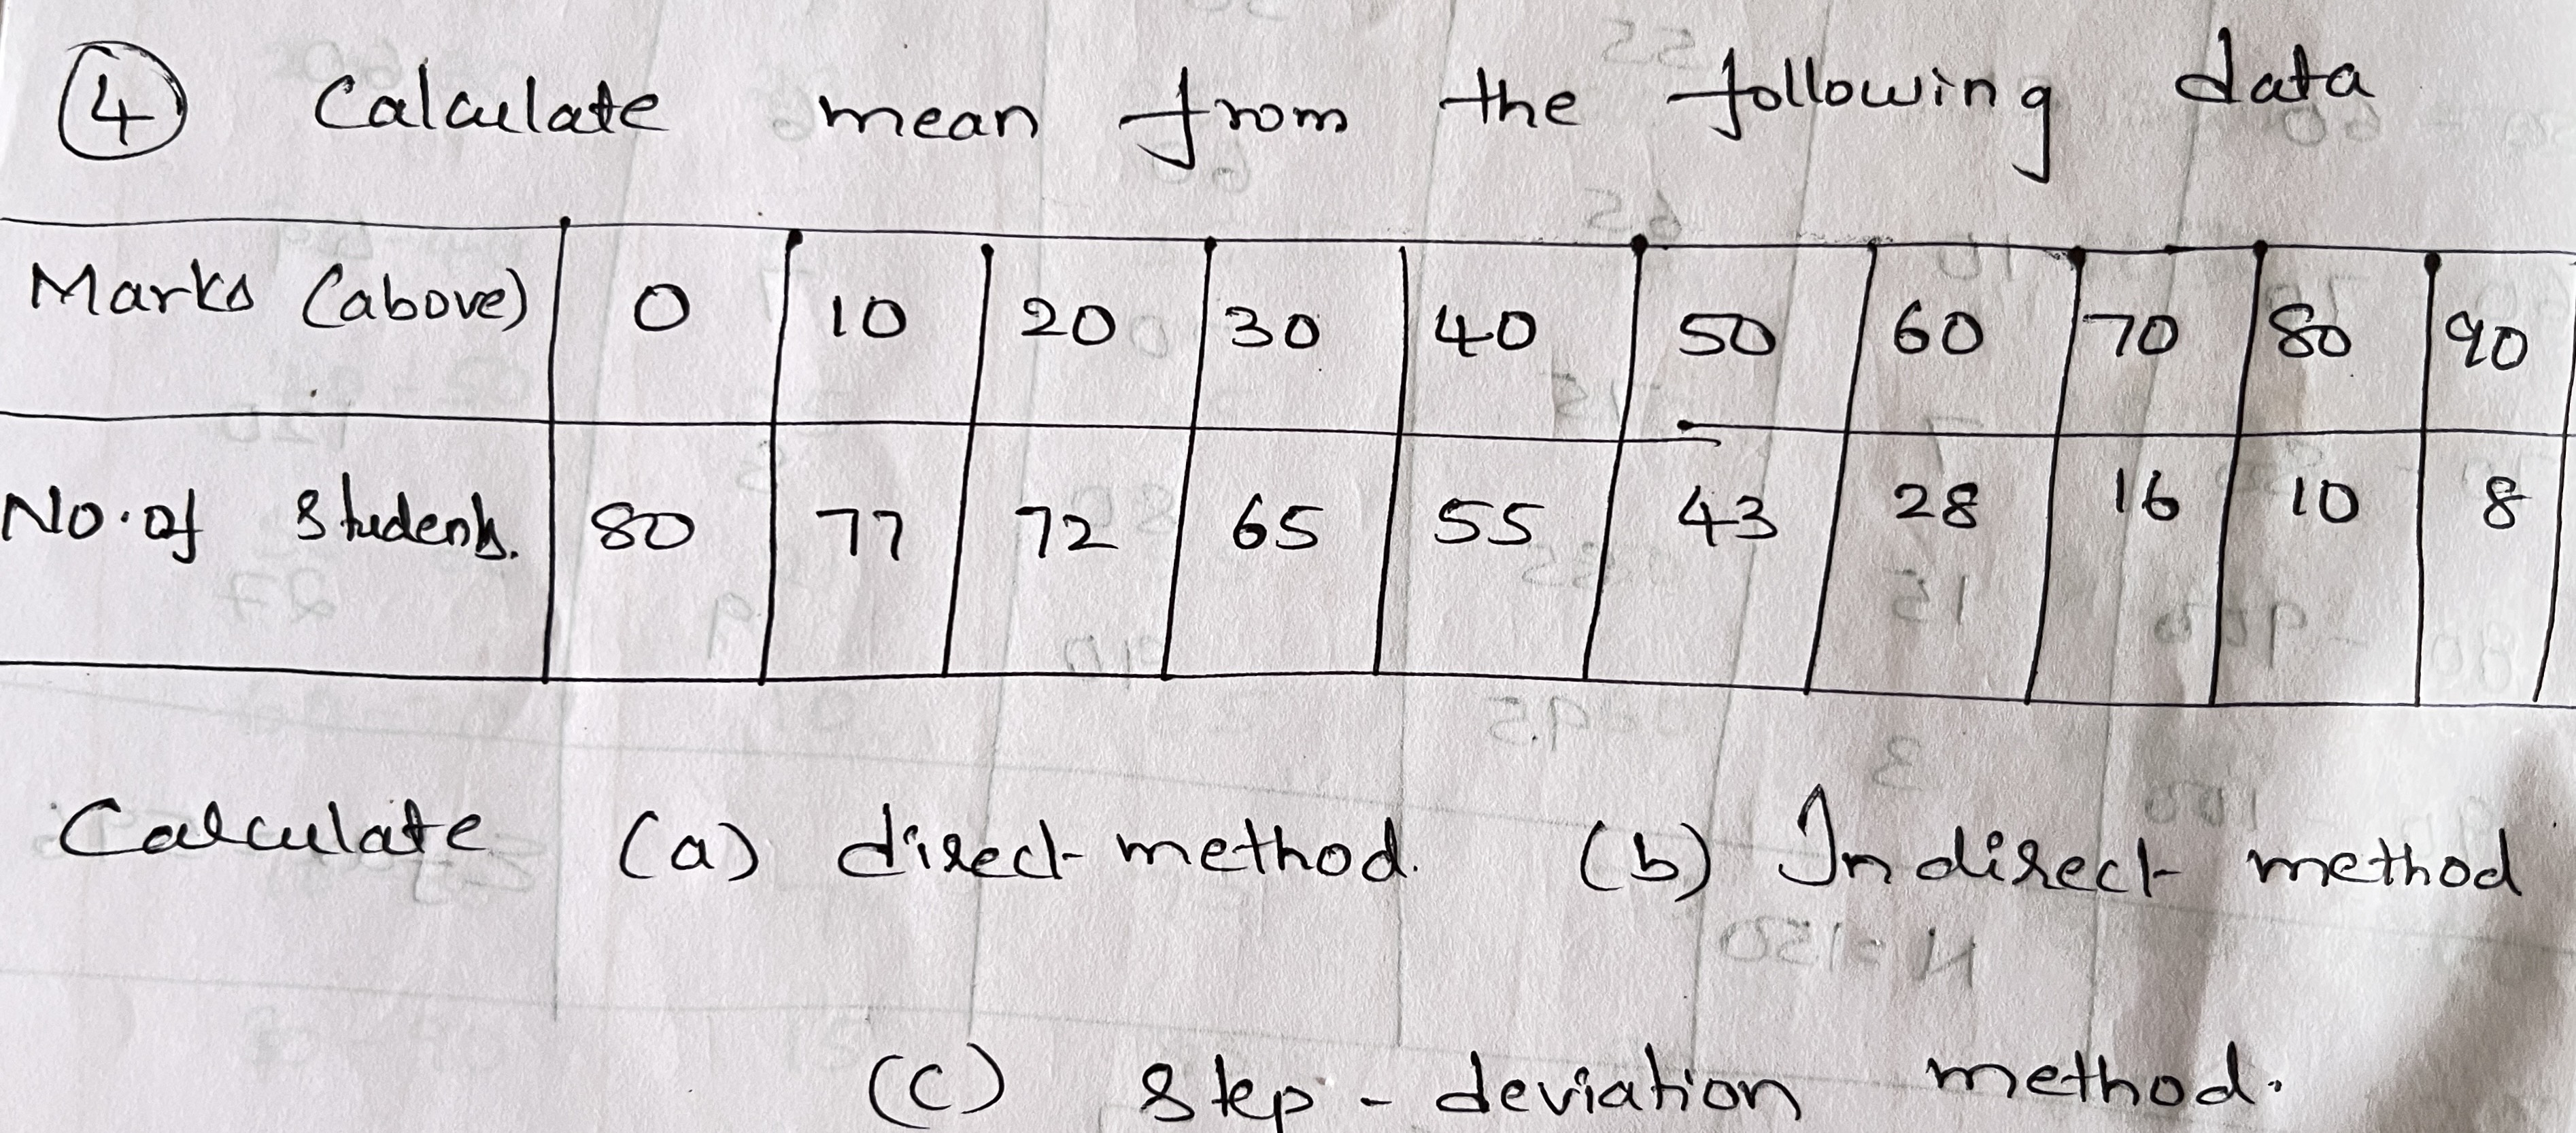 ④ Calculate mean from the following data
Marks (above) 0 10 20 30 40 50 60 70 80 90
No. of Students. 80 77 72 65 55 43 28 16 10 8
Calculate (a) direct method. (b) Indirect method
(c) Step-deviation method.